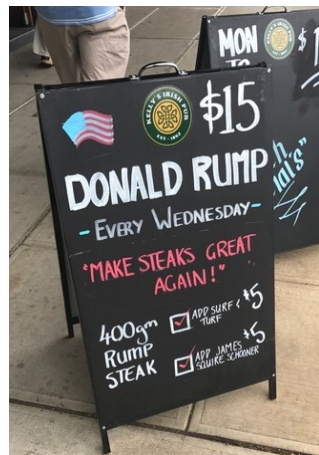 KELLY'S IRISH PUB
$15
DONALD RUMP
- EVERY WEDNESDAY -
"MAKE STEAKS GREAT
AGAIN!"
400gm
RUMP
STEAK
ADD SURF &
TURF
$5
ADD JAMES
SQUIRE SCHOONER
$5
MON